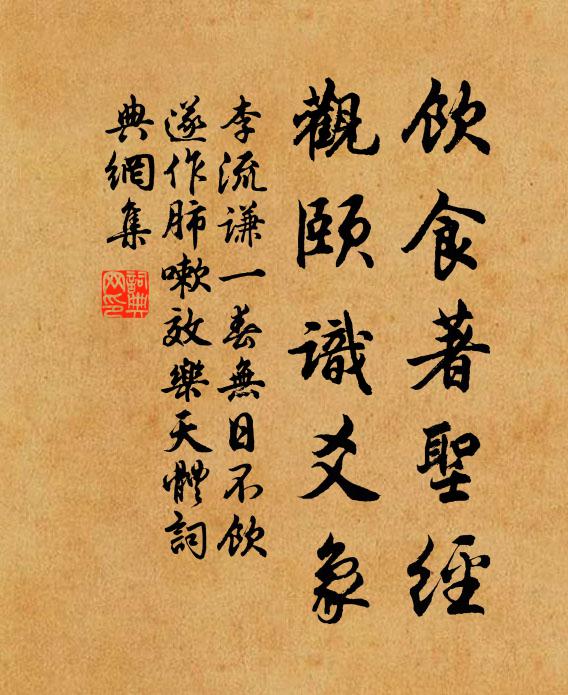 飲食著聖經
觀頤識爻象
李流謙一春無日不飲
遂作肺嗽效樂天體詞
典網集
詞典
网印